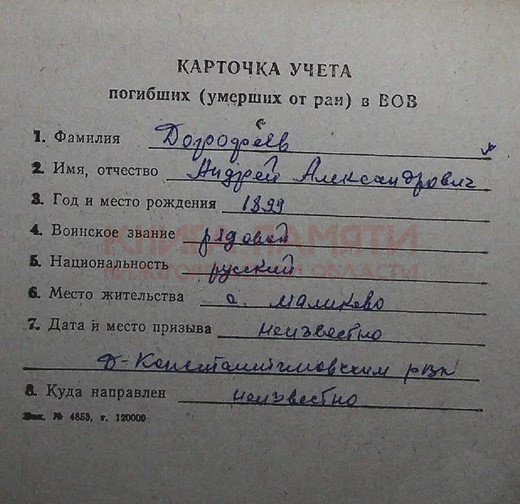 КАРТОЧКА УЧЕТА
погибших (умерших от ран) в ВОВ
1. Фамилия Дорофеев
2. Имя, отчество Андрей Александрович
3. Год и место рождения 1899
4. Воинское звание рядовой
КНИГА ПАМЯТИ
5. Национальность русский
НИЖЕГОРОДСКОЙ ОБЛАСТИ
6. Место жительства с. Маликово
7. Дата и место призыва неизвестно
Д-Константиновским рвк
8. Куда направлен неизвестно
Зак. № 4853, т. 120000